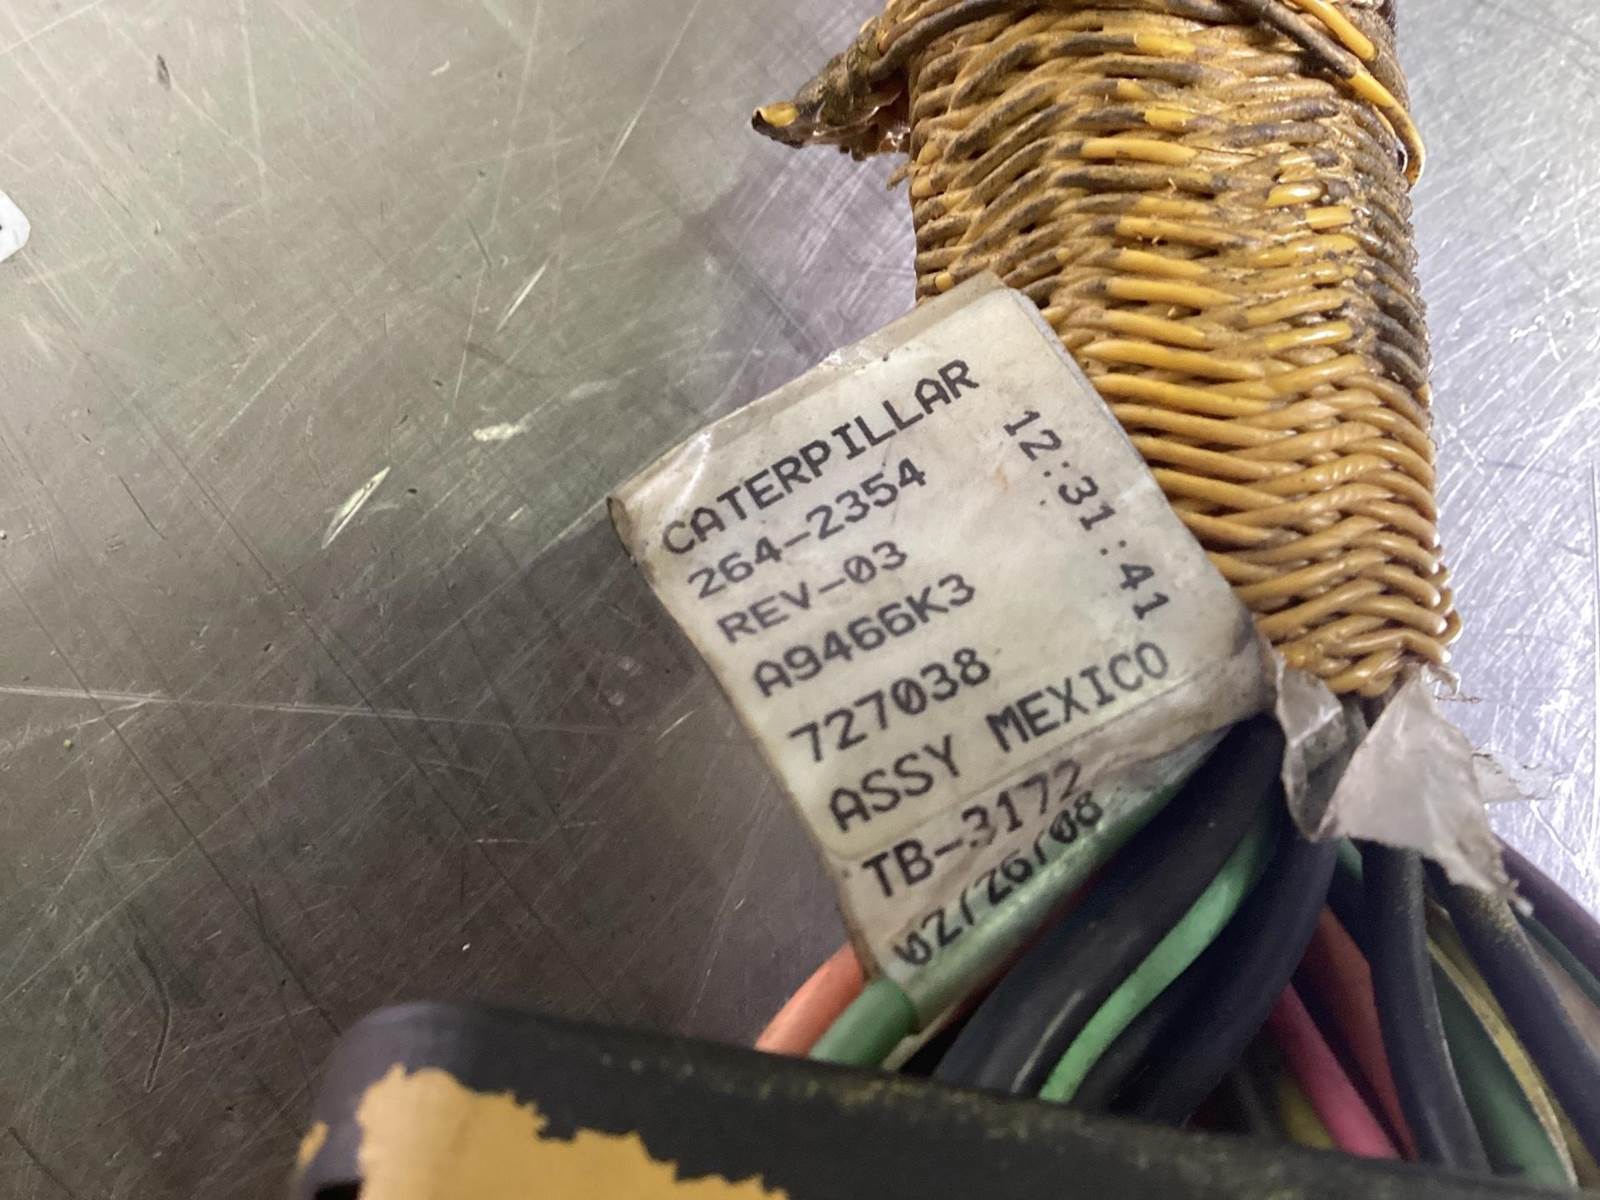 CATERPILLAR
264-2354
REV-03
A9466K3
727038
ASSY MEXICO
TB-3172
02/26/08
12:31:41